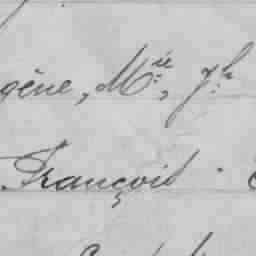 gène, Mie, Jh
François.